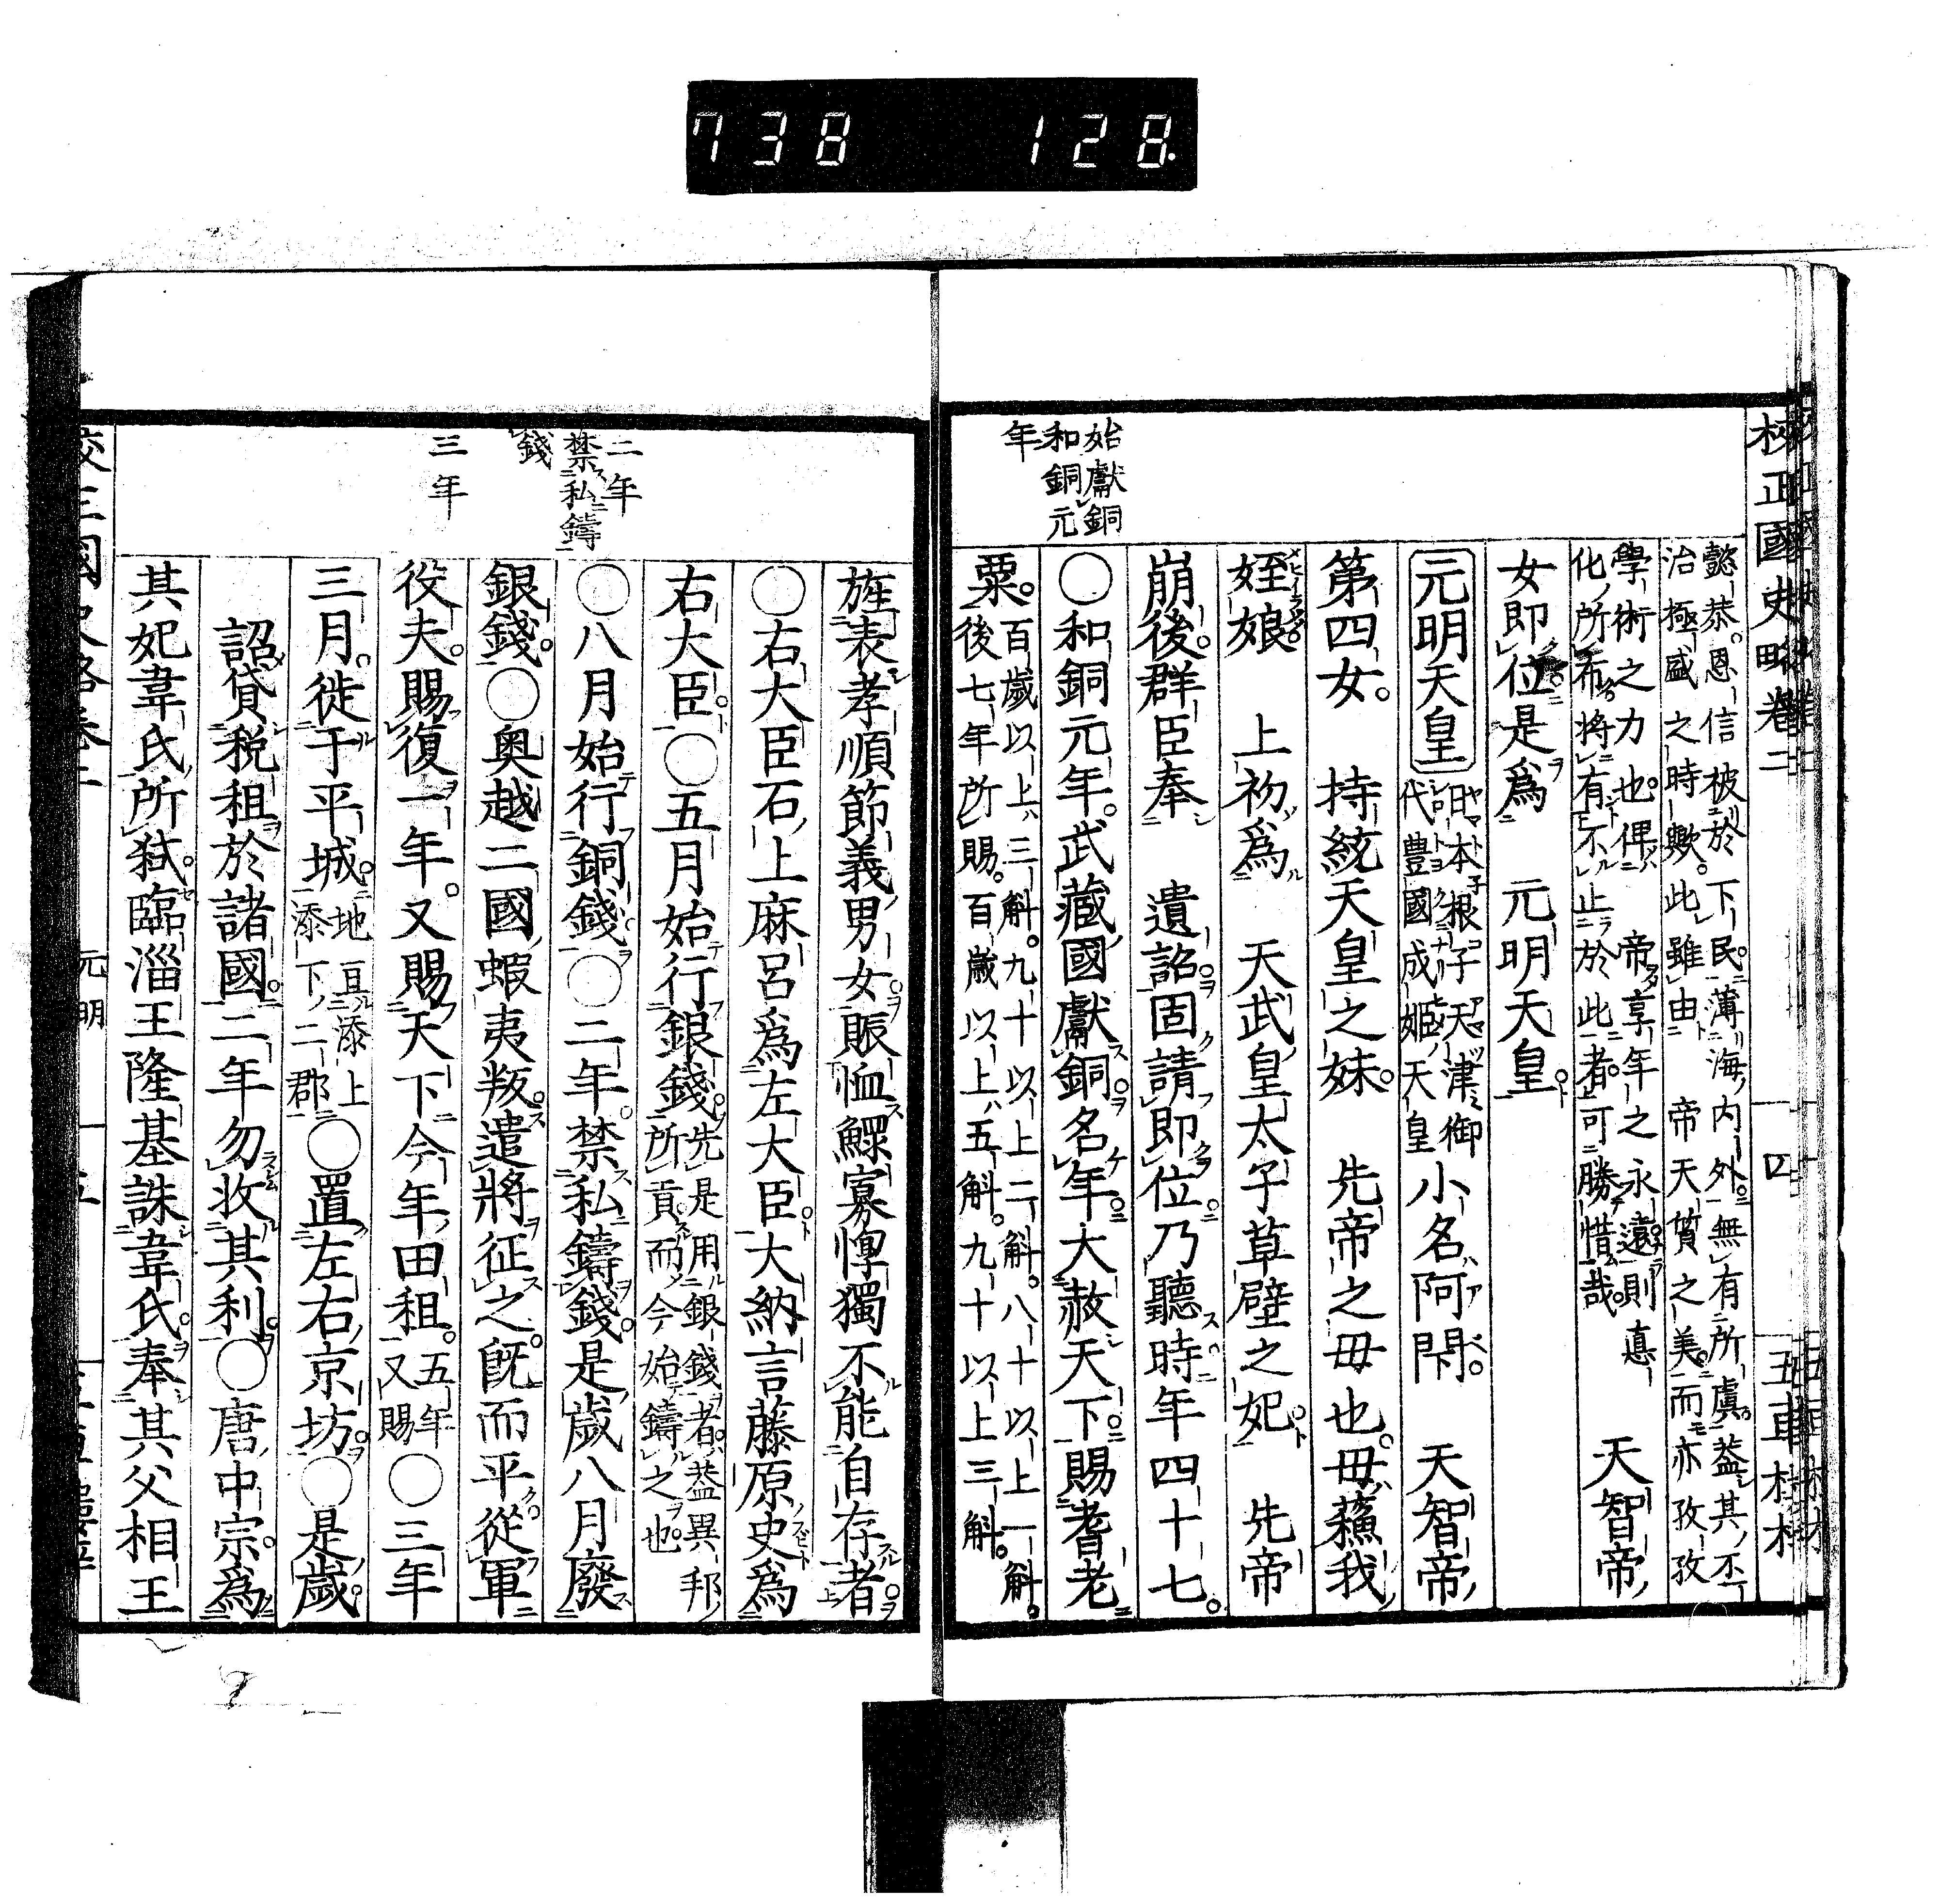 738 128.
校正國史略卷二 四 五車樓梓
懿恭恩信被於下民薄海內外無有所虞蓋其丕
治極盛之時歟此雖由 帝天質之美而亦孜孜
學術之力也俾 帝享年之永遠則 惪
化所布將有不止於此者可勝惜哉 天智帝
女即位是爲 元明天皇
元明天皇 日本根子天津御
代豊國成姬天皇
小名阿閇 天智帝
第四女 持統天皇之妹 先帝之母也母蘓我
姪娘 上初爲 天武皇太子草壁之妃 先帝
崩後群臣奉 遺詔固請即位乃聽時年四十七
始獻銅
和銅元
年
○和銅元年武藏國獻銅名年大赦天下賜耆老
粟 百歲以上三斛九十以上二斛八十以上一斛
後七年所賜百歲以上五斛九十以上三斛
旌表孝順節義男女賑恤鰥寡惸獨不能自存者
○右大臣石上麻呂爲左大臣大納言藤原史爲
右大臣○五月始行銀錢 先是用銀錢者蓋異邦
所貢而今始鑄之也
二年
禁私鑄
錢
○八月始行銅錢○二年禁私鑄錢是歲八月廢
銀錢○奥越二國蝦夷叛遣將征之旣而平從軍
三年
役夫賜復一年又賜天下今年田租 五年
又賜
○三年
三月徙于平城 地亘添上
添下二郡
○置左右京坊○是歲
詔貸稅租於諸國二年勿收其利○唐中宗爲
其妃韋氏所弑臨淄王隆基誅韋氏奉其父相王
元明